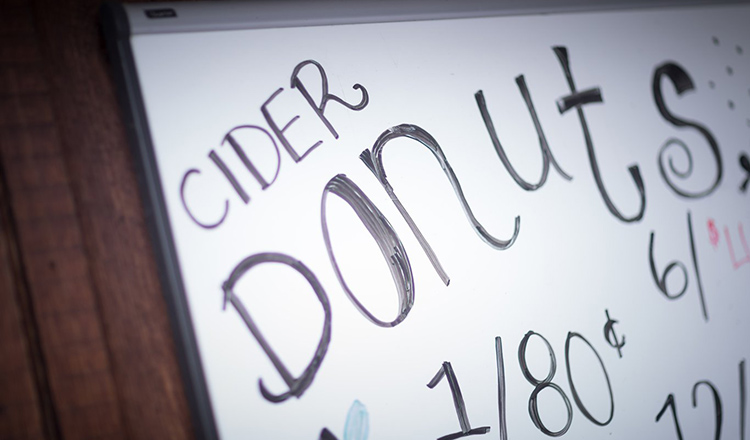 CIDER
Donuts
6/ $
1/80¢
12/